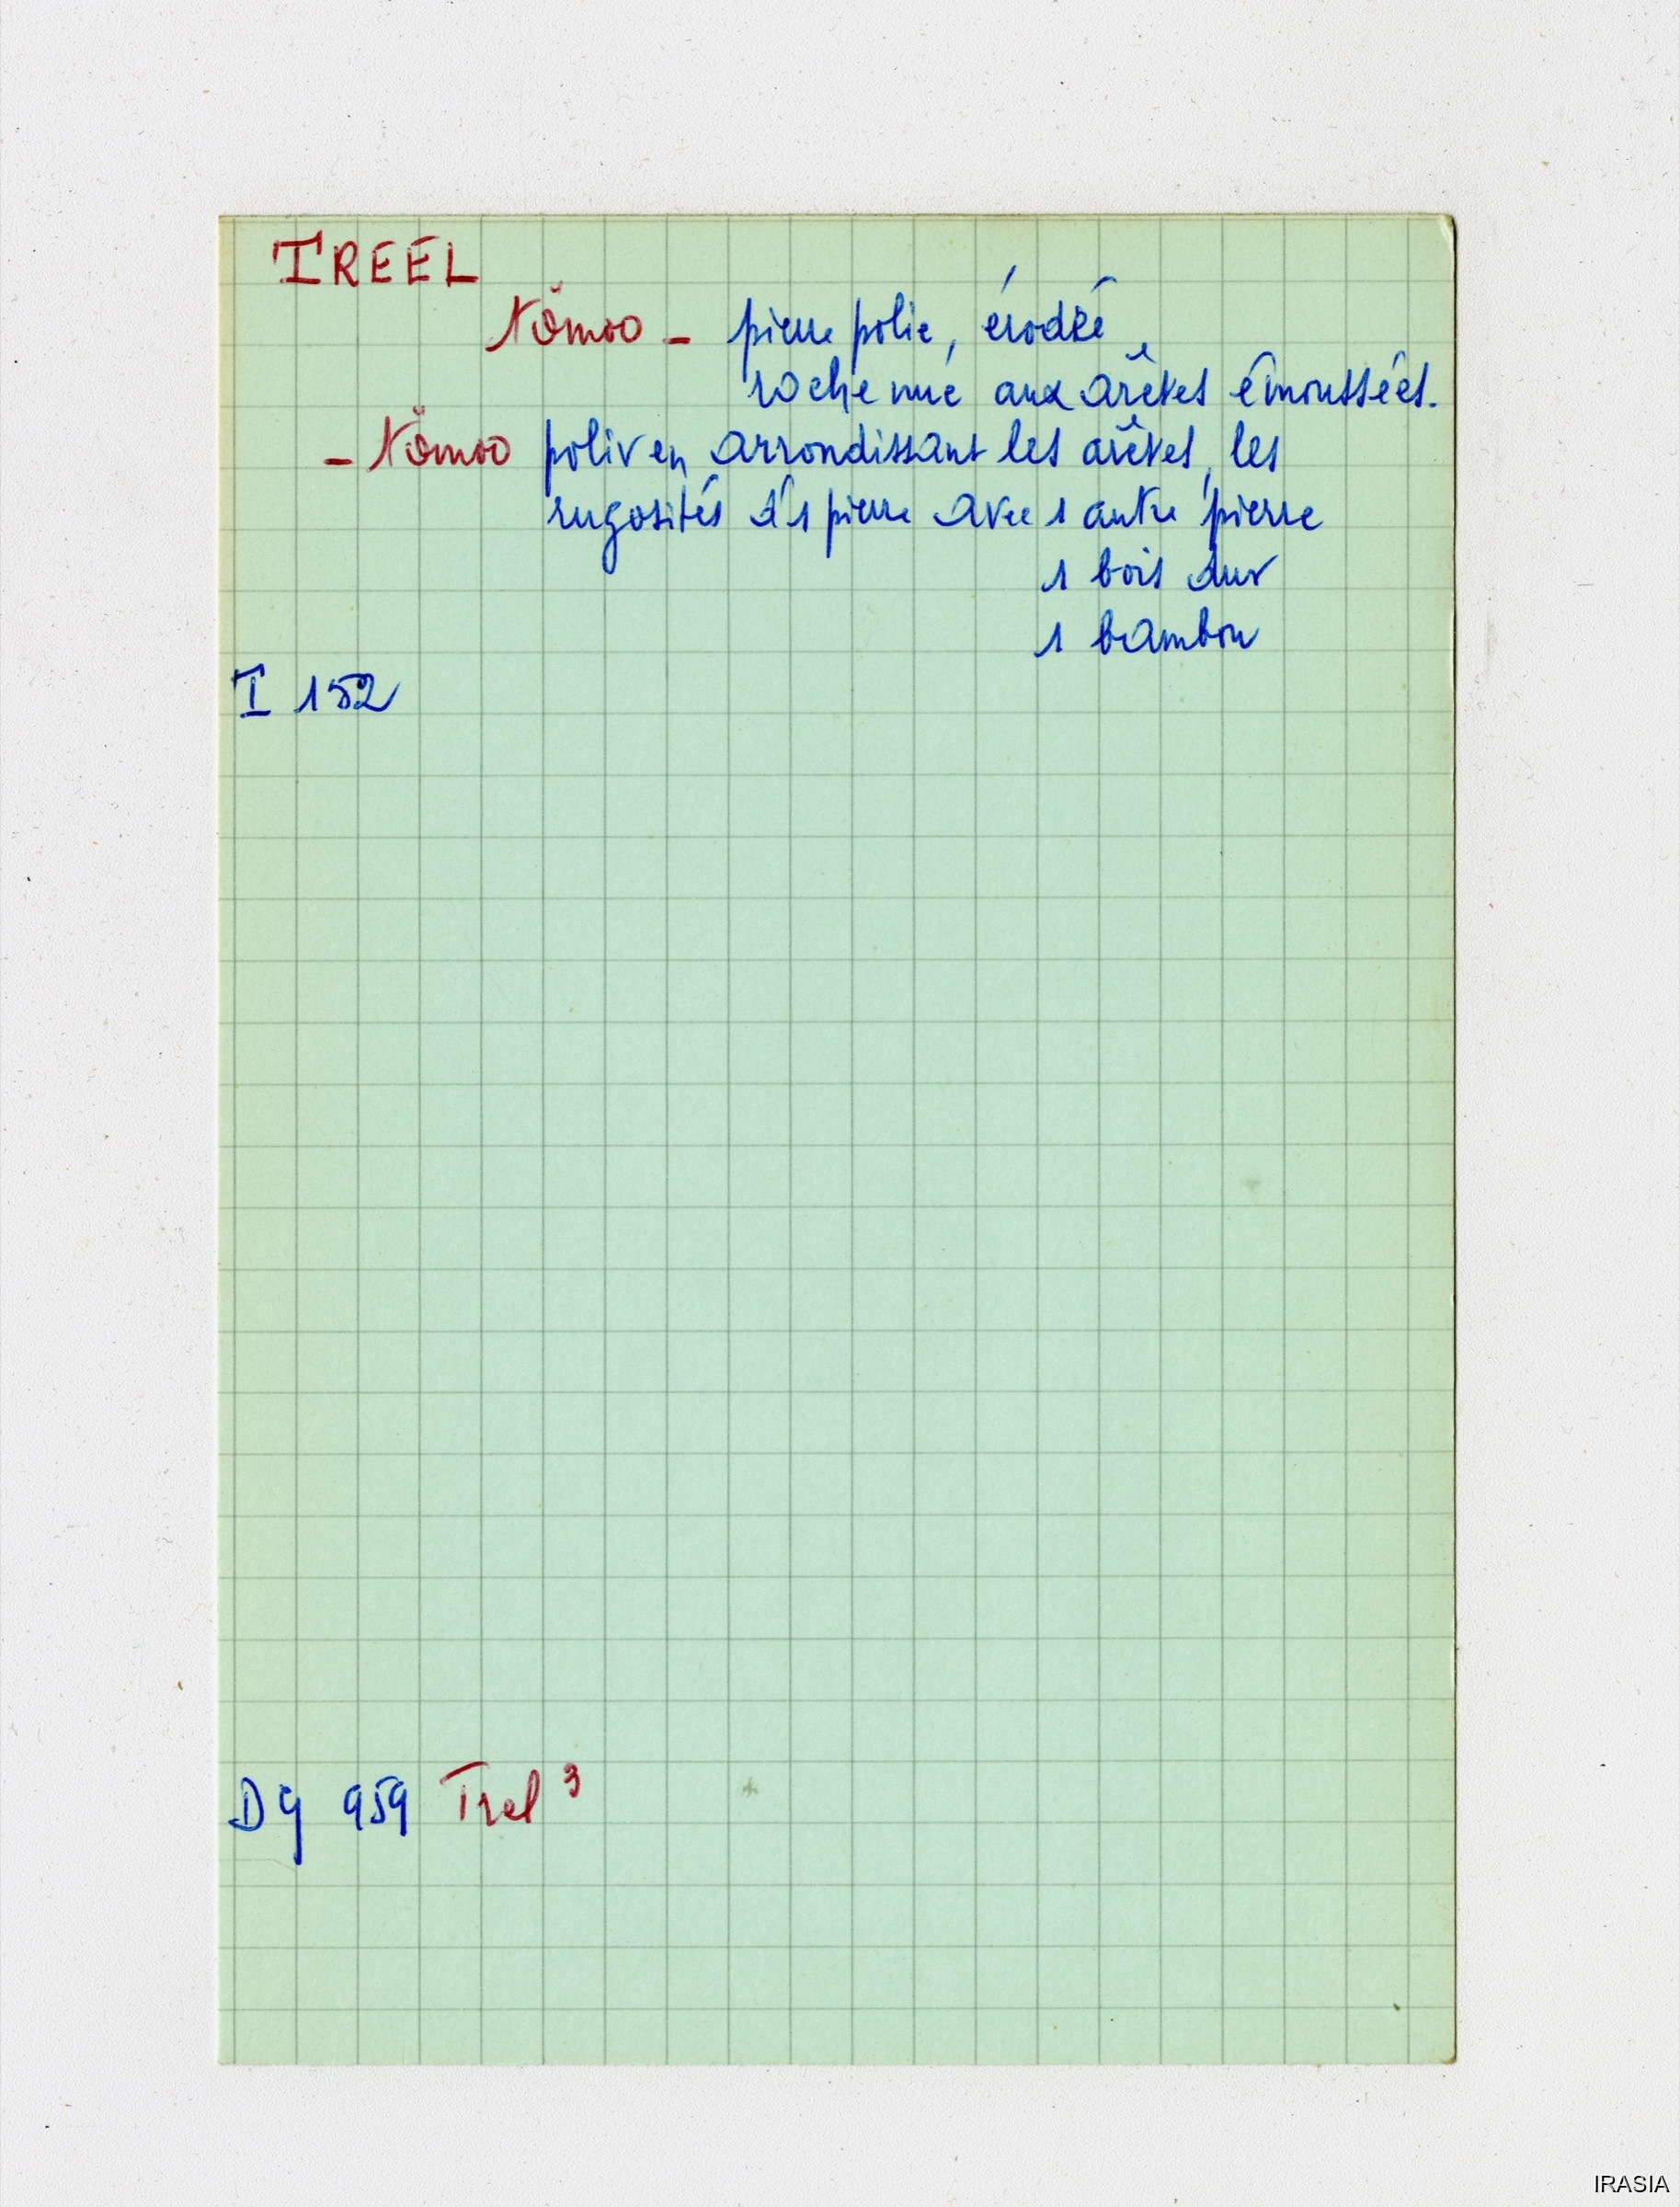 TREEL
tŏmoo – pierre polie, érodée
roche nue aux arêtes émoussées.
– tŏmoo polir en arrondissant les arêtes, les
rugosités d'1 pierre avec 1 autre pierre
1 bois dur
1 bambou
I 152
D9 959 Trel 3
IRASIA